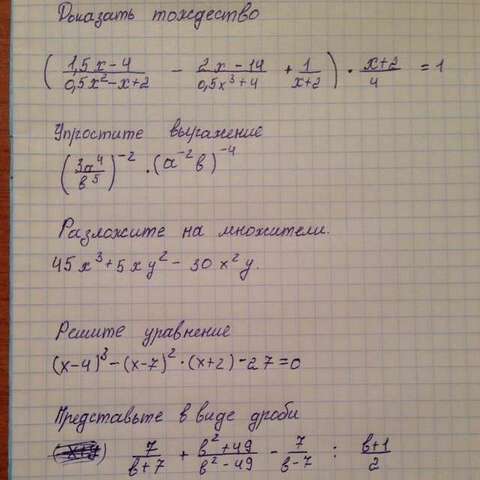 Доказать тождество
( (1,5x-4)/(0,5x²-x+2) - (2x-14)/(0,5x³+4) + 1/(x+2) ) · (x+2)/4 = 1
Упростите выражение
(3a⁴/b⁵)⁻² · (a⁻²b)⁻⁴
Разложите на множители.
45x³+5xy²-30x²y.
Решите уравнение
(x-4)³-(x-7)²·(x+2)-27=0
Представьте в виде дроби
7/(b+7) + (b²+49)/(b²-49) - 7/(b-7) : (b+1)/2